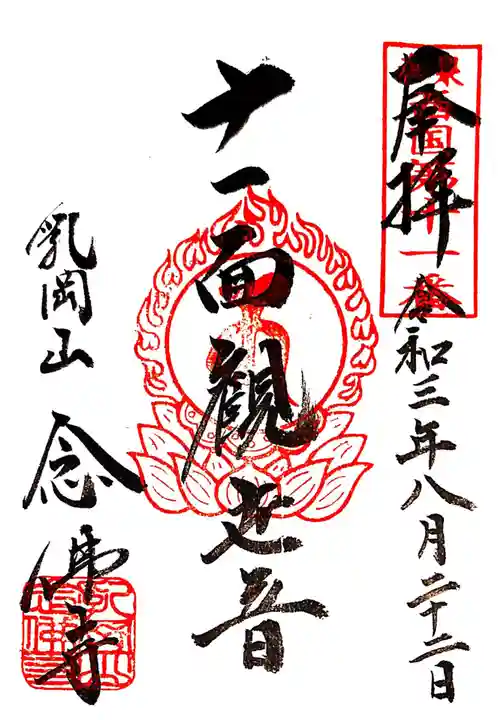 奉拝
令和三年八月二十二日
十一面観世音
乳岡山
念佛寺